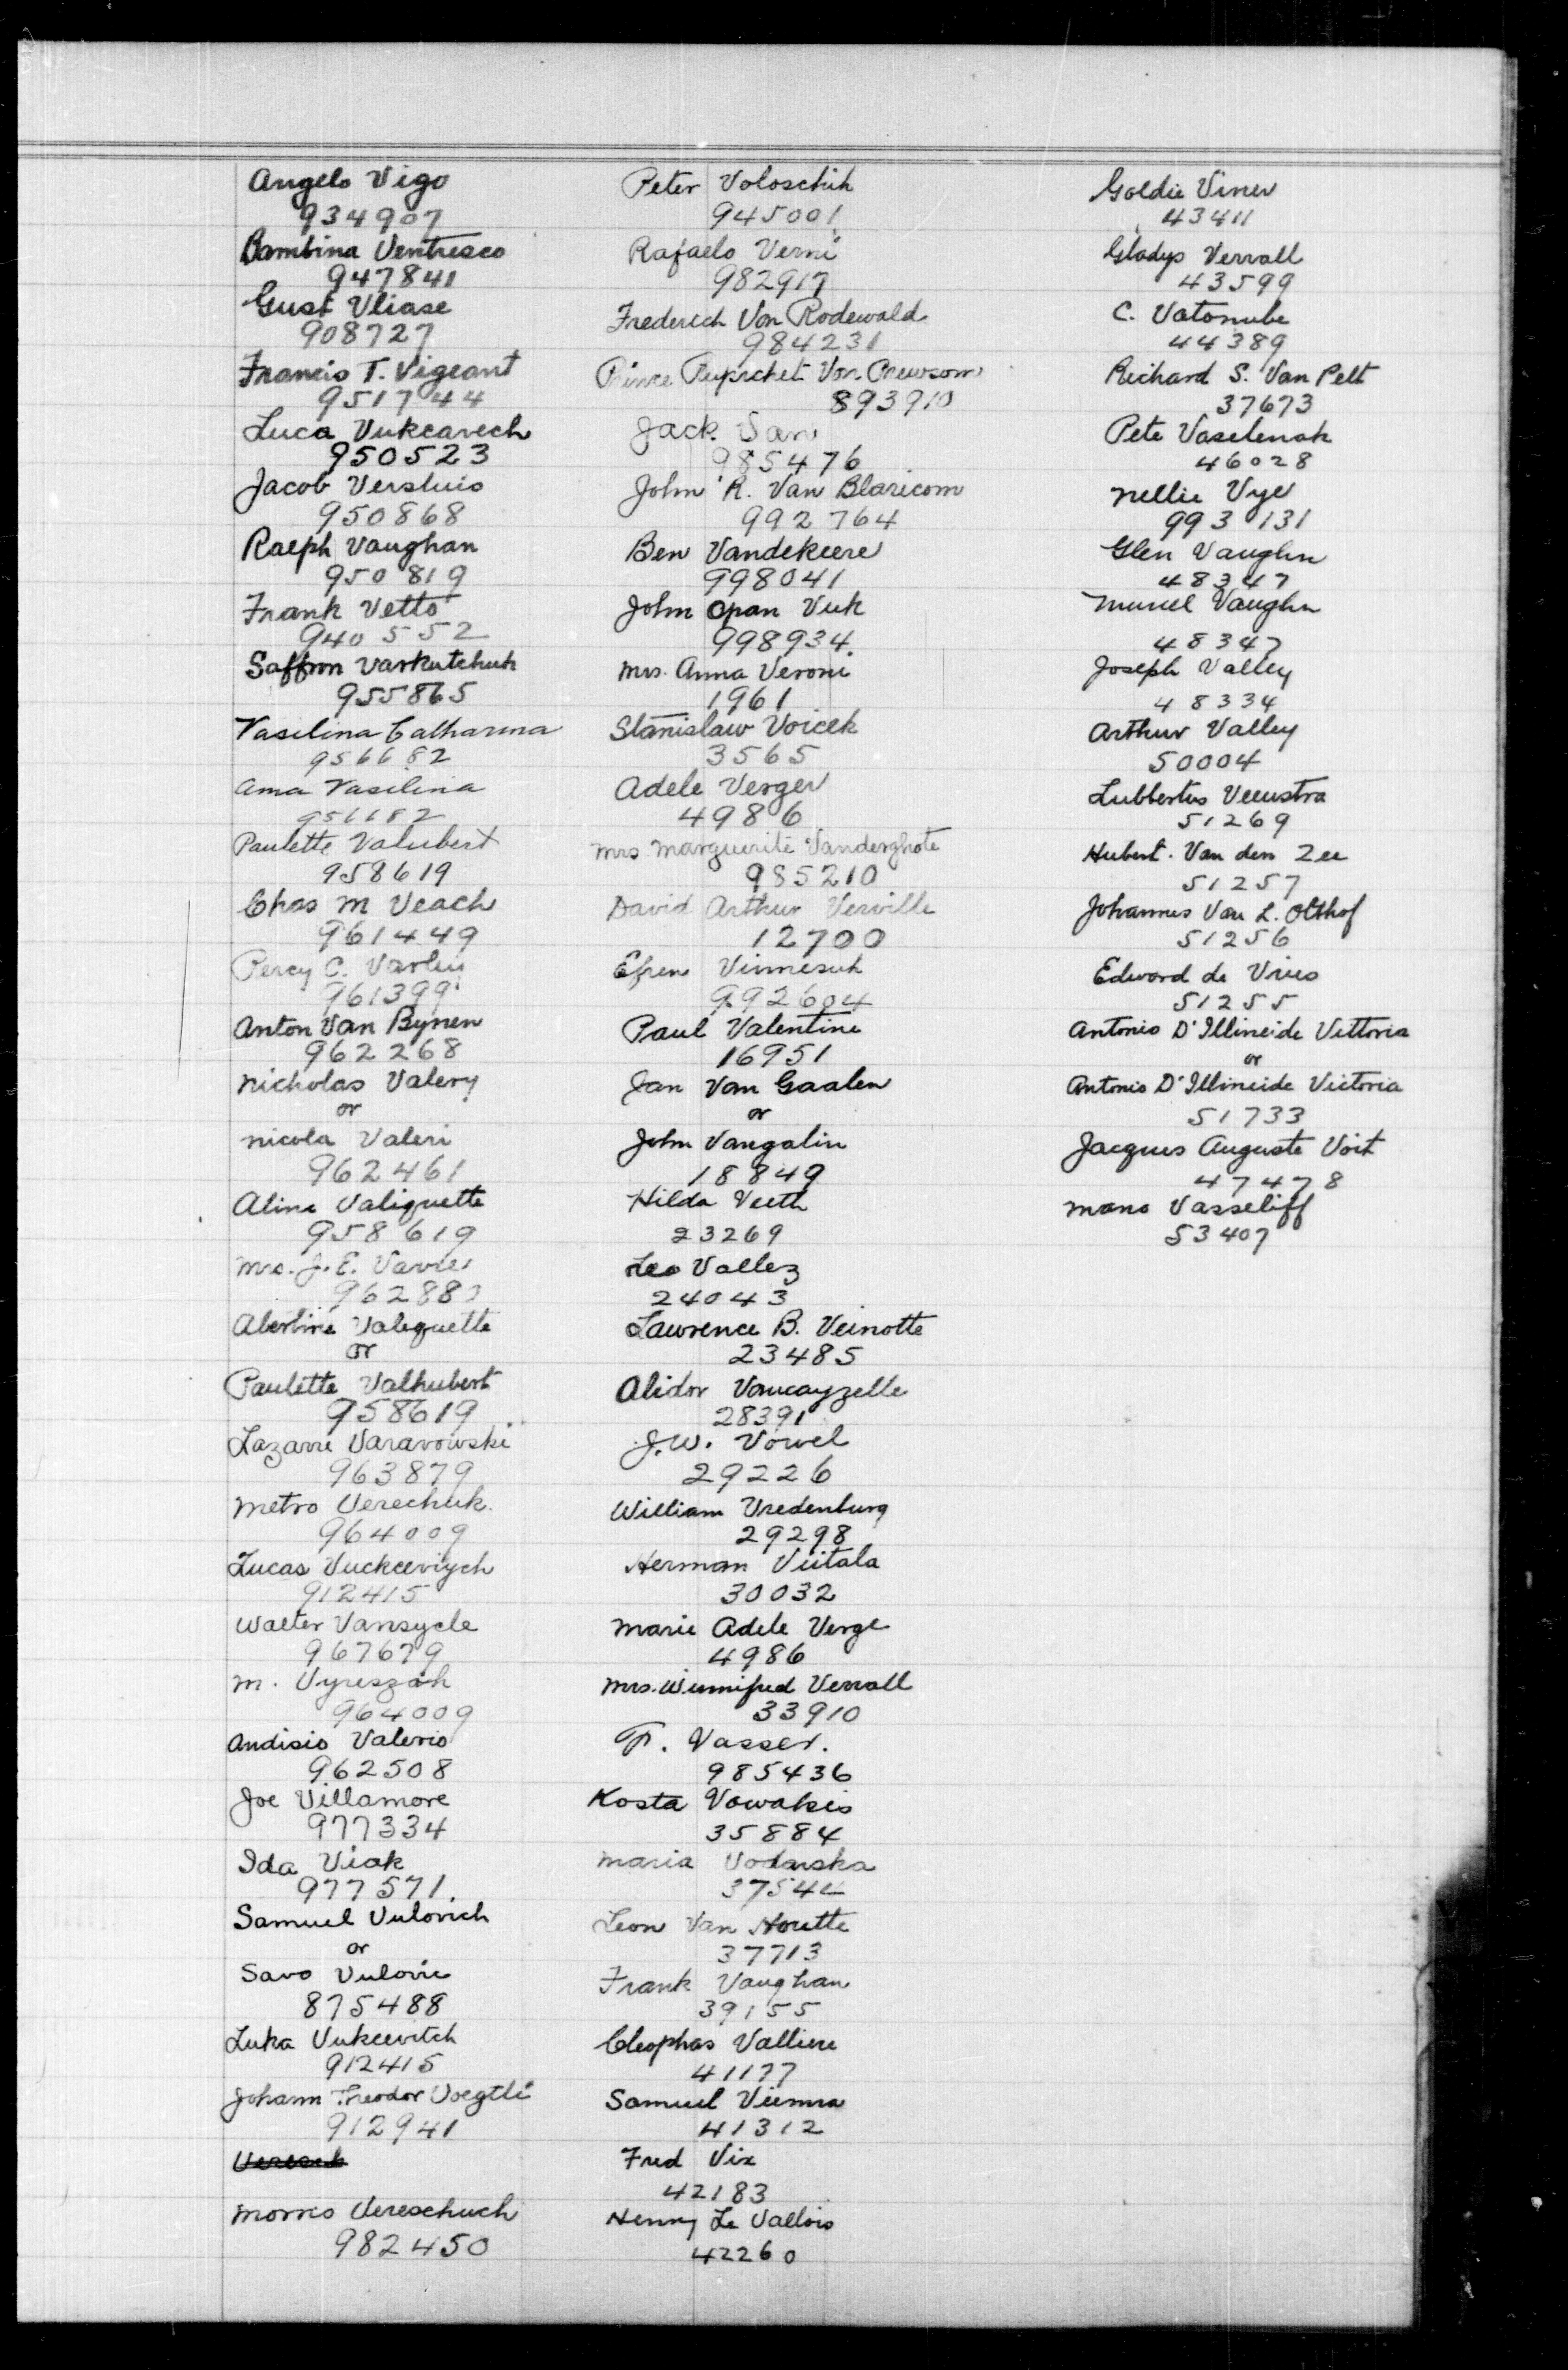 Angelo Vigo
934907
Bambina Ventresco
947841
Gust Vliase
908727
Francis T. Vigeant
951744
Luca Vukcavech
950523
Jacob Versluis
950868
Ralph Vaughan
950819
Frank Vetto
940552
Saffron Varkutchuk
955865
Vasilina Catharina
956682
Anna Vasilina
Paulette Valubert
958619
Chas M Veach
961449
Percy C. Varley
961399
Anton Van Bynen
962268
Nicholas Valery
or
Nicola Valeri
962461
Aline Valiquette
958619
Mrs. J. E.
Albertine Valiquette
or
Paulette Valhubert
958619
Lazarre Varavowski
963879
Metro Verechuk.
964009
Lucas Vuckceviych
912415
Walter Vansycle
967679
M. Vyreszak
964009
Andisio Valerio
962508
Joe Villamore
977334
Ida Viak
977571.
Samuel Vulovich
or
Savo Vulovic
875488
Luka Vukcevitch
912415
Johann Theodor Voegtli
912941
Morris Vereschuch
982450
Peter Voloschik
945001
Rafaelo Verni
982917
Frederich Von Rodewald
984231
Prince Von
893910
Jack Van
985476
John R. Van Blaricom
992764
Ben Vandekeere
998041
John Opan Vuk
998934.
Mrs. Anna Veroni
1961
Stanislaw Voicek
3565
Adele Verger
4986
Mrs Marguerite Vanderghote
985210
David Arthur Verville
12700
Efrem
992604
Paul Valentine
16951
Jan Van Gaalen
or
John Vangalin
18849
Hilda Veeth
23269
Leo Vallez
24043
Lawrence B. Veinotte
23485
Alidor Vancayzelle
28391
J. W. Vowel
29226
William Vredenburg
29298
Herman Viitala
30032
Marie Adele Verge
4986
Mrs. Winnifred Verrall
33910
F. Vasser.
985436
Kosta Vowakis
35884
Maria Vodarska
37544
Leon Van Houtte
37713
Frank Vaughan
39155
Cleophas Valliere
41177
Samuel Vienna
41312
Fred Vix
42183
Henry Le Vallois
42260
Goldie Viner
43411
Gladys Verrall
43599
C. Vatonube
44389
Richard S. Van Pelt
37673
Pete Vaselenak
46028
Nellie Vye
993131
Glen Vaughn
48347
Muriel Vaughn
48347
Joseph Valley
48334
Arthur Valley
50004
Lubbertus Veenstra
51269
Hubert. Van den Zee
51257
Johannes Van L. Olthof
51256
Edward de Vries
51255
Antonio D'Illineide Vittoria
or
Antonio D'Illineide Victoria
51733
Jacques Auguste Voit
47478
Mano Vasseliff
53407